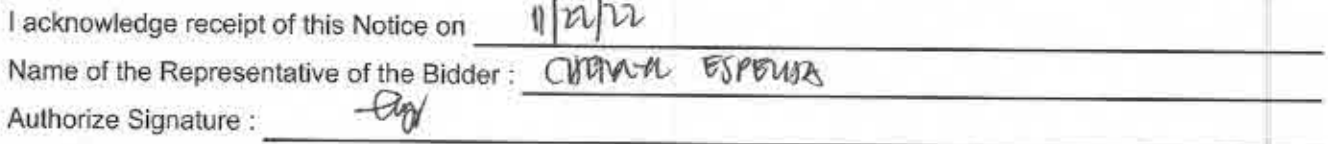 I acknowledge receipt of this Notice on 11/22/22
Name of the Representative of the Bidder :
Authorize Signature :